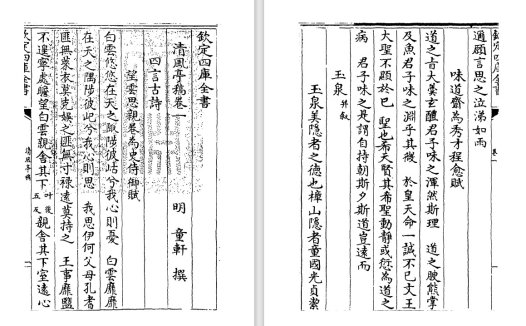 欽定四庫全書
清風亭稿卷一
明 童軒 撰
四言古詩
望雲思親卷為史侍御賦
白雲悠悠在天之陬陟彼岵兮我心則憂 白雲靡靡
在天之隅陟彼屺兮我心則思 我思伊何父母孔耆
匪無萊衣莫克娛之匪無寸祿遠莫將之 王事靡盬
不遑寧處瞻望白雲親舍其下 叶後五反 親舍其下室遠心
欽定四庫全書
清風亭稿
欽定四庫全書
卷一
邇願言思之泣涕如雨
味道齋為秀才程愈賦
道之旨大羹玄醴君子味之渾然斯理 道之腴熊掌
及魚君子味之淵乎其 於皇天命一誠不已文王
大聖不顯於已 聖也希天賢其希聖動靜或愆為道之
病 君子味之是謂自持朝斯夕斯道豈遠而
玉泉 并敘
玉泉美隱者之德也樟山隱者童國光貞潔